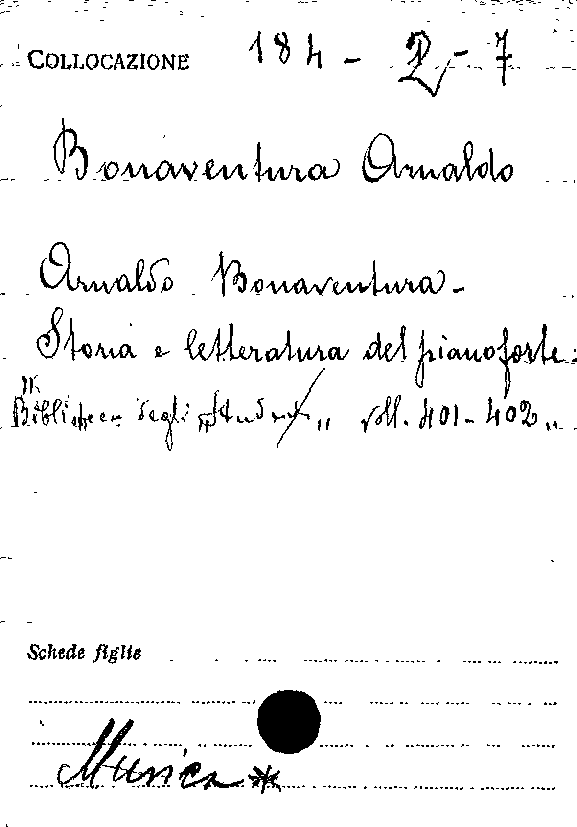 COLLOCAZIONE 184 - D - 7
Bonaventura Arnaldo
Arnaldo Bonaventura -
Storia e letteratura del pianoforte:
"Biblioteca degli „Studenti„ voll. 401-402„
Schede figlie
Musica *